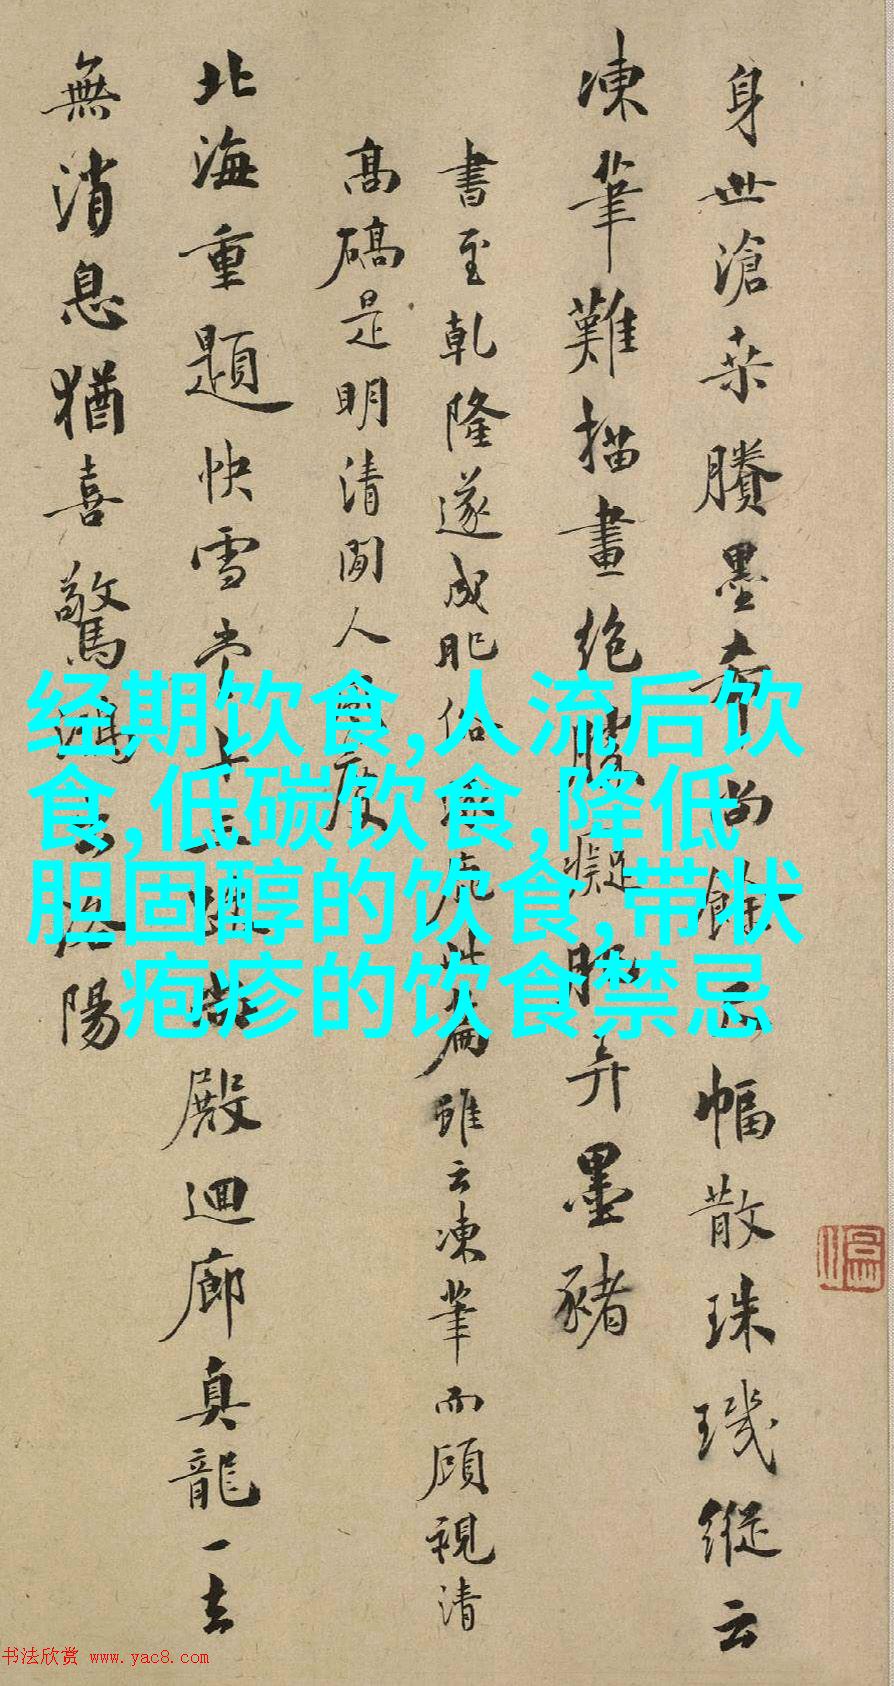 身世滄桑賸墨希尚餘幅散珠璣縱云
凍筆難描畫絶勝癡肥弄墨豬
書至乾隆遂成肥俗此篇雖云凍筆而顧視清
高礄是明清間人度
北海重題快雪堂殿迴廊真龍一去
無消息猶喜驚鴻洛陽
经期饮食,人流后饮
食,低碳饮食,降低
胆固醇的饮食,带状
疱疹的饮食禁忌
书法欣赏 www.yac8.com